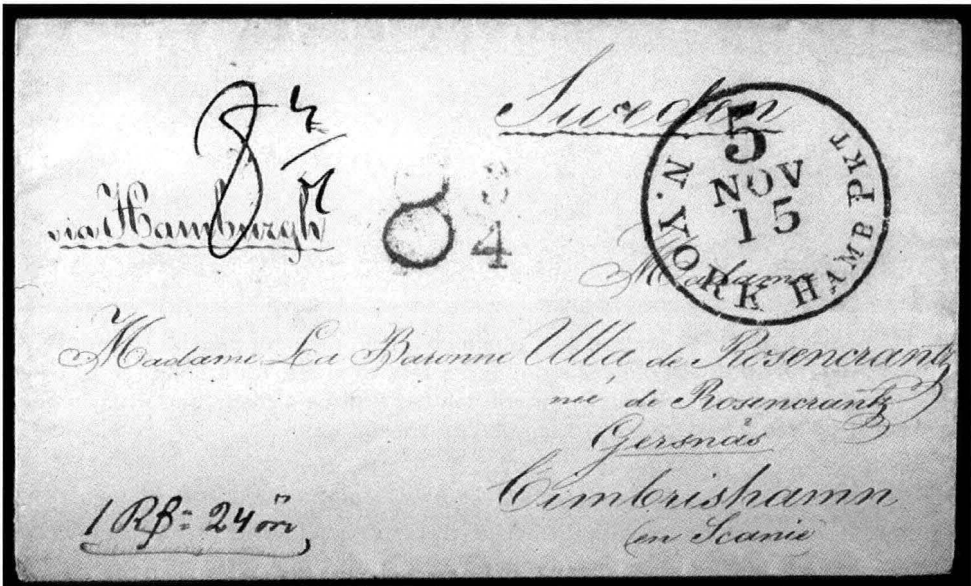 Sweden
via Hamburgh
8
3
4
5
NOV
15
N. YORK HAMB PKT
Madame
Madame La Baronne Ulla de Rosencrantz
née de Rosencrantz
Gersnäs
Cimbrishamn
en Scanie
1 R 24 öre